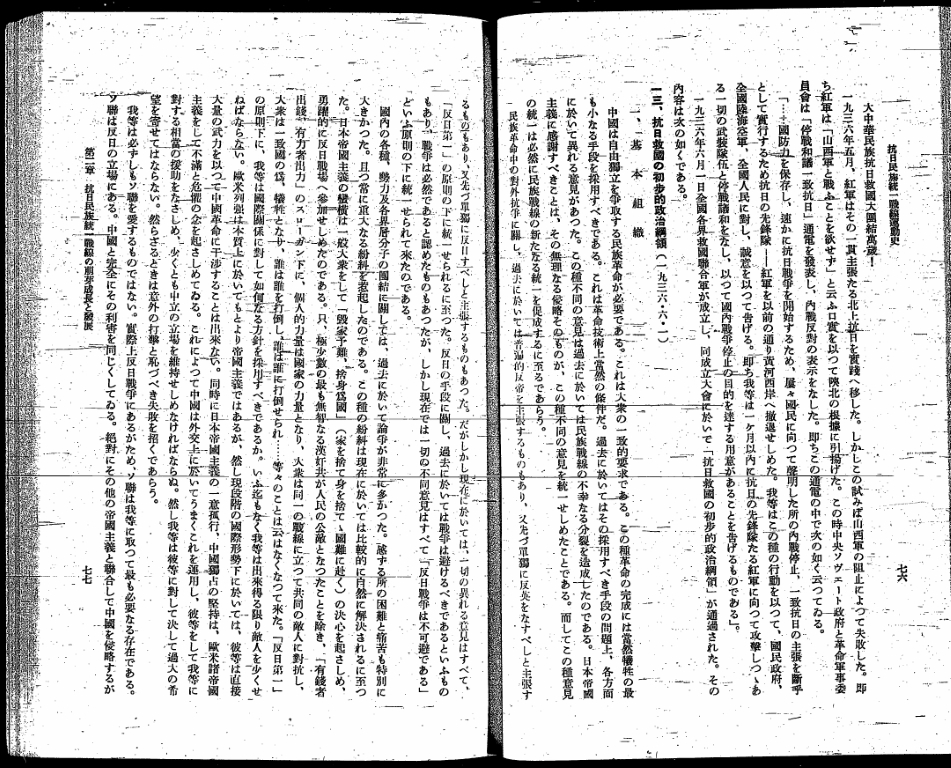 抗日民族統一戰線運動史
七六
大中華民族抗日救國大團結萬歲!
一九三六年五月、紅軍はその一貫主張たる北上抗日を實踐へ移した。しかしこの試みは山西軍の阻止によつて失敗した。即
ち紅軍は「山西軍と戰ふことを欲せず」と云ふ口實を以つて陝北の根據に引揚げた。この時中央ソヴェート政府と革命軍事委
員會は「停戰和議一致抗日」通電を發表し、內戰反對の表示をなした。即ちこの通電の中で次の如く云つてゐる。
「……國防力を保存し、速かに抗日戰爭を開始するため、屢々國民に向つて聲明した所の內戰停止、一致抗日の主張を斷乎
として實行するため抗日の先鋒隊——紅軍を以前の通り黃河西岸へ撤退せしめた。我等はこの種の行動を以つて、國民政府、
全國陸海空軍、全國人民に對し、誠意を以つて告げる。即ち我等は一ケ月以內に抗日の先鋒隊たる紅軍に向つて攻擊しつゝあ
る一切の武裝隊伍と停戰議和をなし、以つて國內戰爭停止の目的を達する用意があることを告げるものである」。
一九三六年六月一日全國各界救國聯合軍が成立し、同成立大會に於いて「抗日救國の初步的政治綱領」が通過された。その
內容は次の如くである。
一三、抗日救國の初步的政治綱領(一九三六・六・一)
一、基本組織
中國は自由獨立を爭取する民族革命が必要である。これは大衆の一致的要求である。この種革命の完成には當然犧牲の最
も小なる手段を採用すべきである。これは革命技術上當然の條件だ。過去に於いてはその採用すべき手段の問題上、各方面
に於いて異れる意見があつた。この種不同の意見は過去に於いては民族戰線の不幸なる分裂を造成したのである。日本帝國
主義に感謝すべきことは、その無理なる侵略そのものが、この種不同の意見を統一せしめたことである。而してこの種意見
の統一は必然に民族戰線の新たなる統一を促成するに至るであらう。
民族革命中の對外抗爭に關し、過去に於いては普遍的反帝を主張するものもあり、又先づ單獨に反英をなすべしと主張す
るものもあり、又先づ單獨に反日すべしと主張するものもあつた。だがしかし現在に於いては、一切の異れる意見はすべて、
「反日第一」の原則の下に統一せられるに至つた。反日の手段に關し、過去に於いては戰爭は避けるべきであるといふもの
もあり、戰爭は必然であると認めたものもあつたが、しかし現在では一切の不同意見はすべて「反日戰爭は不可避である」
といふ原則の下に統一せられて來たのである。
國內の各種、勢力及各界層分子の團結に關しては、過去に於いて論爭が非常に多かつた。感ずる所の困難と痛苦も特別に
大きかつた。且つ常に重大なる紛糾を惹起したのである。この種の紛糾は現在に於いては比較的に自然に解決されるに至つ
た。日本帝國主義の蠻橫は一般大衆をして「毀家予難、捨身爲國」(家を捨て身を捨てゝ國難に赴く)の決心を起さしめ、
勇躍的に反日戰場へ參加せしめたのである。只、極少數の最も無智なる漢奸共が人民の公敵となつたことを除き、「有錢者
出錢、有力者出力」のスローガン下に、個人的力量は國家の力量となり、大衆は同一の戰線に立つて共同の敵人に對抗し、
大衆は一致國の爲、犧牲となり、誰は誰を打倒し、誰は誰に打倒せられ……等々のことは云はなくなつて來た。「反日第一」
の原則下に、我等は國際關係に對して如何なる方針を採用すべきであるか。いふ迄もなく我等は出來得る限り敵人を少くせ
ねばならない。歐米列强は本質上に於いてもとより帝國主義ではあるが、然し現段階の國際形勢下に於いては、彼等は直接
大量の武力を以つて中國革命に干涉することは出來ない。同時に日本帝國主義の一意孤行、中國獨占の堅持は、歐米諸帝國
主義をして不滿と危懼の念を起さしめてゐる。これによつて中國は外交上に於いてうまくこれを運用し、彼等をして我等に
對する相當の援助をなさしめ、少くとも中立の立場を維持せしめなければならぬ。然し我等は彼等に對して決して過大の希
望を寄せてはならない。然らざるときは意外の打擊と恥づべき失敗を招くであらう。
我等は必ずしもソ聯を愛するものではない。實際上反日戰爭にあるがため、ソ聯は我等に取つて最も必要なる存在である。
ソ聯は反日の立場にある。中國と完全にその利害を同じくしてゐる。絕對にその他の帝國主義と聯合して中國を侵略するが
第二章 抗日民族統一戰線の萌芽成長と發展
七七